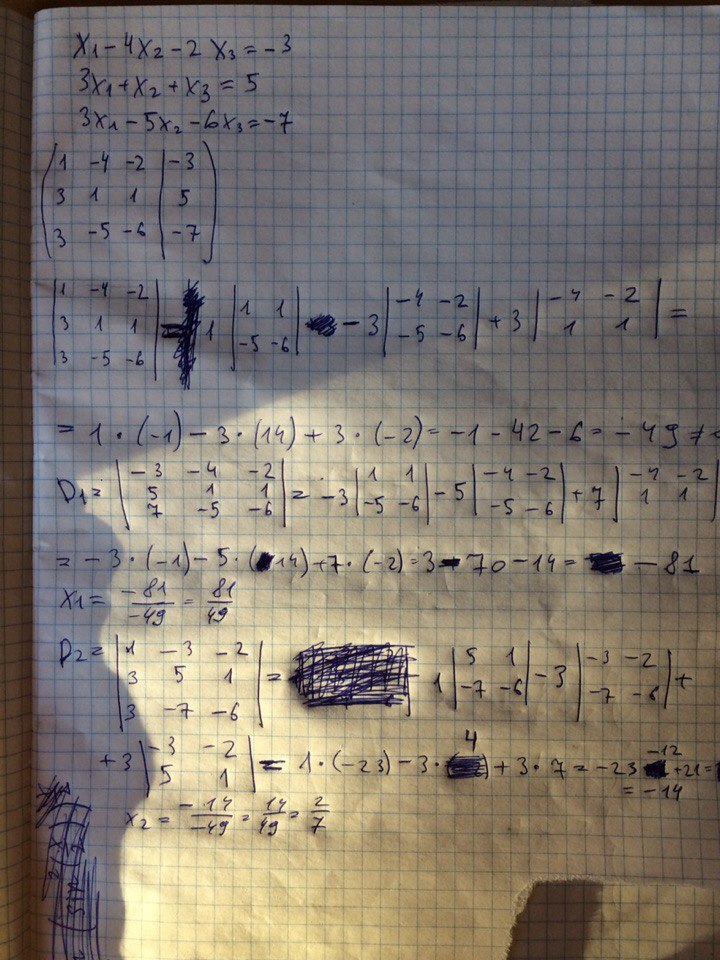 x1 - 4x2 - 2x3 = -3
3x1 + x2 + x3 = 5
3x1 - 5x2 - 6x3 = -7
( 1 -4 -2 | -3 )
( 3 1 1 | 5 )
( 3 -5 -6 | -7 )
| 1 -4 -2; 3 1 1; 3 -5 -6 | = 1 | 1 1; -5 -6 | - 3 | -4 -2; -5 -6 | + 3 | -4 -2; 1 1 | =
= 1 · (-1) - 3 · (14) + 3 · (-2) = -1 - 42 - 6 = -49 ≠
D1 = | -3 -4 -2; 5 1 1; 7 -5 -6 | = -3 | 1 1; -5 -6 | - 5 | -4 -2; -5 -6 | + 7 | -4 -2; 1 1 |
= -3 · (-1) - 5 · (14) + 7 · (-2) = 3 - 70 - 14 = -81
x1 = -81/-49 = 81/49
D2 = | 1 -3 -2; 3 5 1; 3 -7 -6 | = 1 | 5 1; -7 -6 | - 3 | -3 -2; -7 -6 | +
+ 3 | -3 -2; 5 1 | = 1 · (-23) - 3 · 4 + 3 · 7 = -23 -12 + 21 =
= -14
x2 = -14/-49 = 14/49 = 2/7